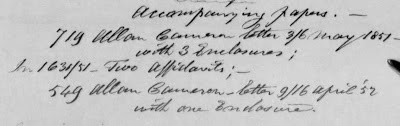 Accompanying papers. —
719 Allan Cameron letter 3/6 May 1851 —
with 3 Enclosures;
In 1631/51 — Two Affidavits; —
549 Allan Cameron — letter 9/16 April '52
with one Enclosure.